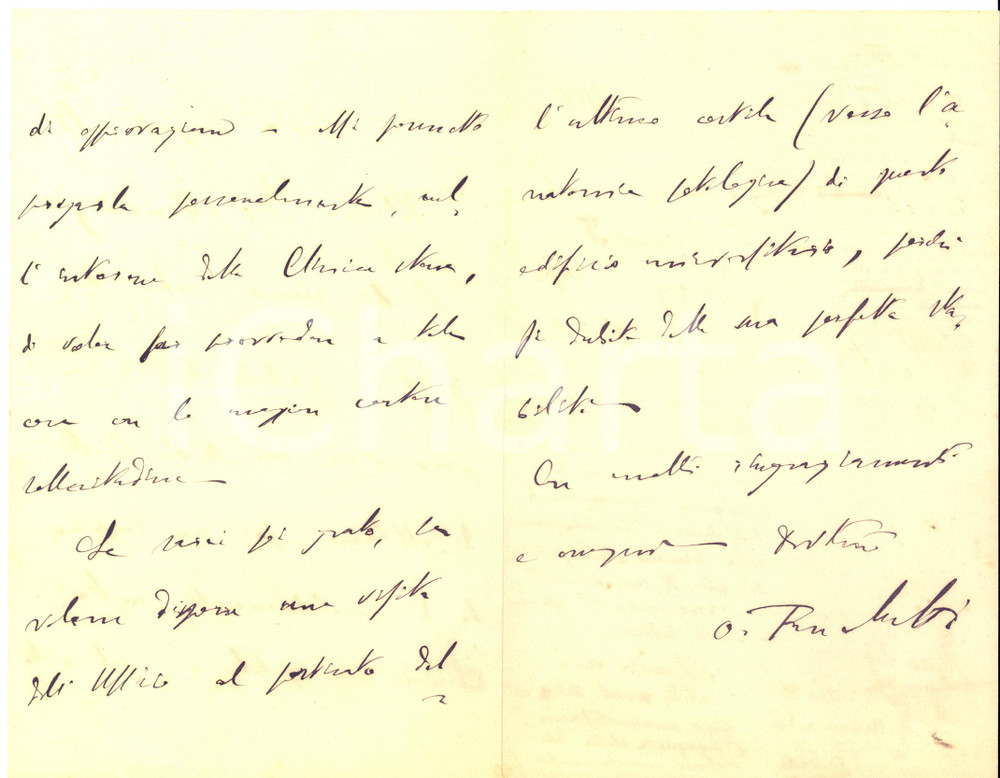 di approvazione – Mi permetto
pregarla personalmente, nel
l'interesse della Clinica stessa,
di voler far provvedere a tale
cosa con la maggior
sollecitudine –
Le sarei poi grato, se
volesse disporre una visita
dell' Ufficio al porticato del
l'ultimo cortile (verso l'a
natomia patologica) di questo
edificio universitario, perché
si dubita della sua perfetta sta
bilità –
Con molti ringraziamenti
e ossequi –
iCharta